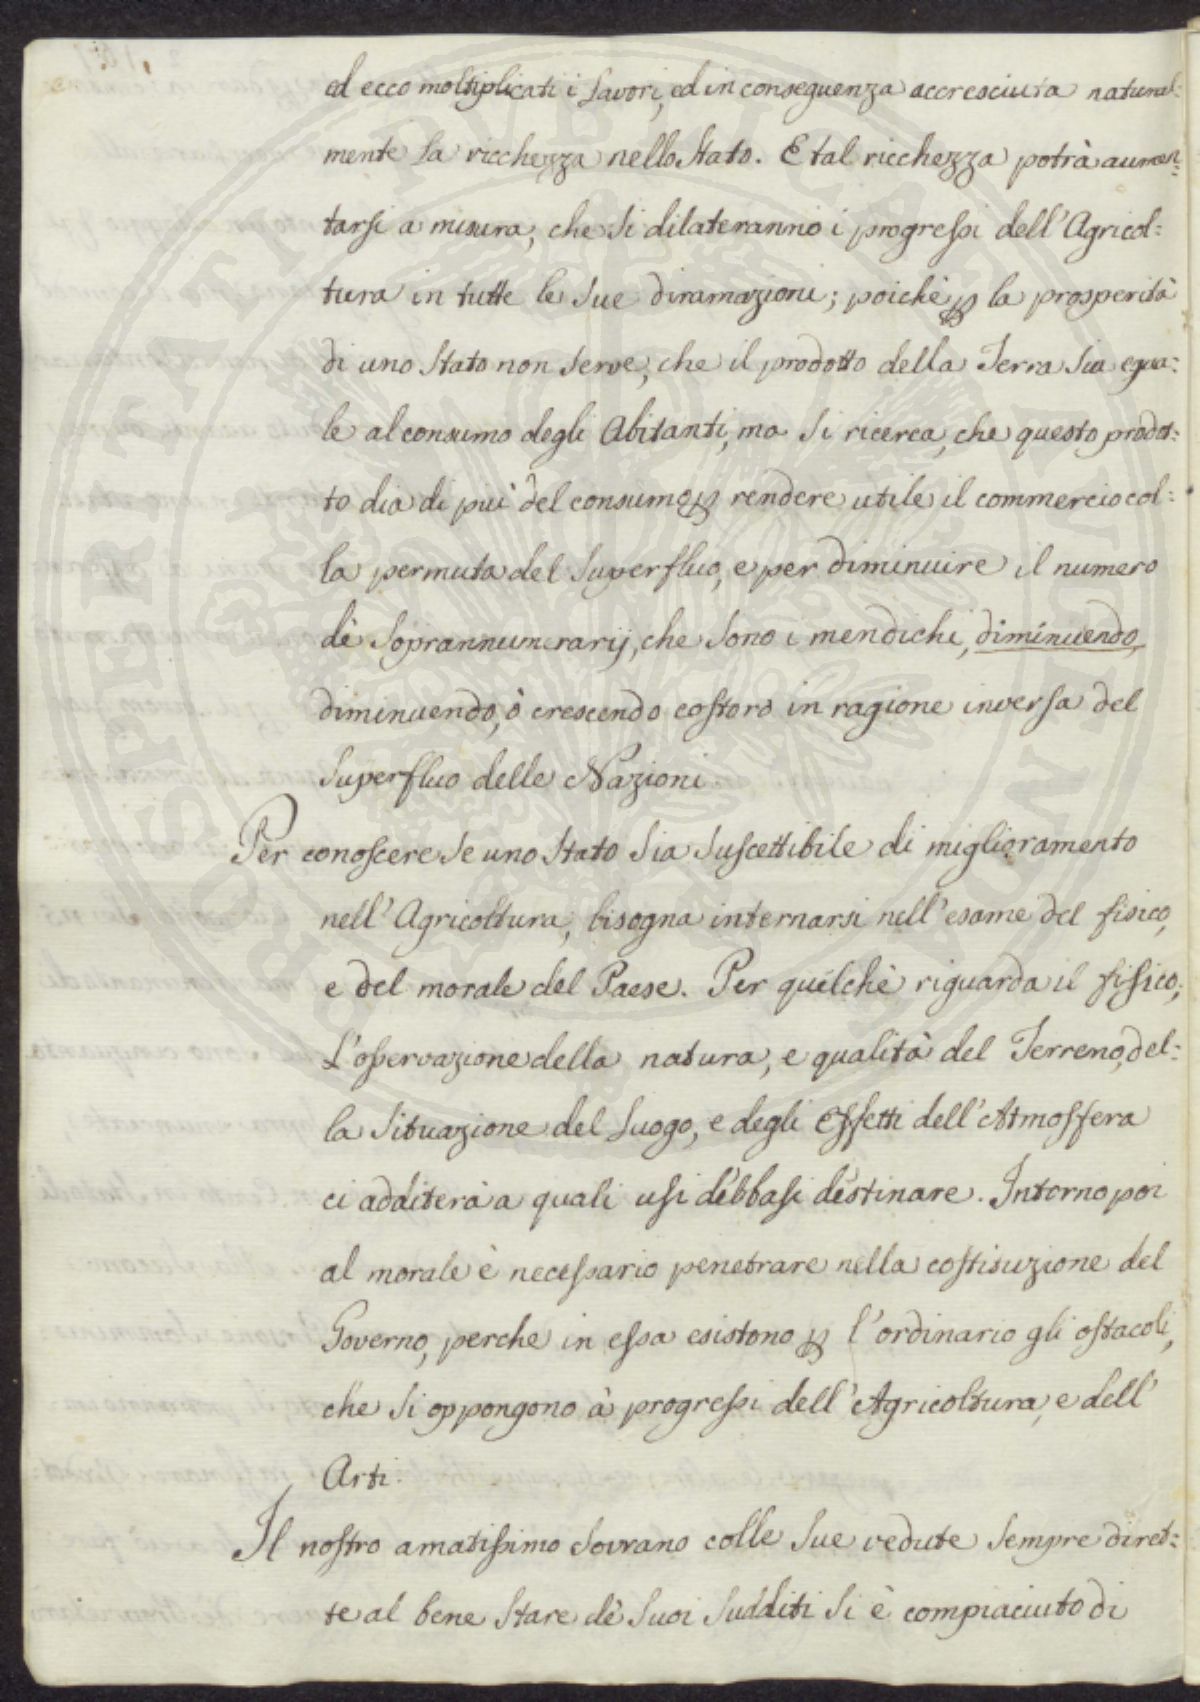 ed ecco moltiplicati i lavori, ed in conseguenza accresciuta natural=
mente la ricchezza nello Stato. E tal ricchezza potrà aumen=
tarsi a misura, che si dilateranno i progressi dell'Agricol=
tura in tutte le sue diramazioni; poichè ꝑ la prosperità
di uno Stato non serve, che il prodotto della Terra sia egua=
le al consumo degli Abitanti, ma si ricerca, che questo prodot=
to dia di più del consumo ꝑ rendere utile il commercio col=
la permuta del superfluo, e per diminuire il numero
dè soprannumerarij, che sono i mendichi, diminuendo,
diminuendo, ò crescendo costoro in ragione inversa del
superfluo delle Nazioni
Per conoscere se uno Stato sia suscettibile di miglioramento
nell'Agricoltura, bisogna internarsi nell'esame del fisico,
e del morale del Paese. Per quelchè riguarda il fisico;
L'osservazione della natura, e qualità del Terreno, del=
la situazione del Luogo, e degli effetti dell'Atmosfera
ci additerà a quali usi dèbbasi dèstinare. Intorno poi
al morale è necessario penetrare nella costituzione del
Governo, perche in essa esistono ꝑ l'ordinario gli ostacoli,
che si oppongono à progressi dell'Agricoltura, e dell'
Arti.
Il nostro amatissimo Sovrano colle sue vedute sempre diret=
te al bene stare dè suoi sudditi si è compiaciuto di
PROSPERITATI PUBLICAE AUGENDAE